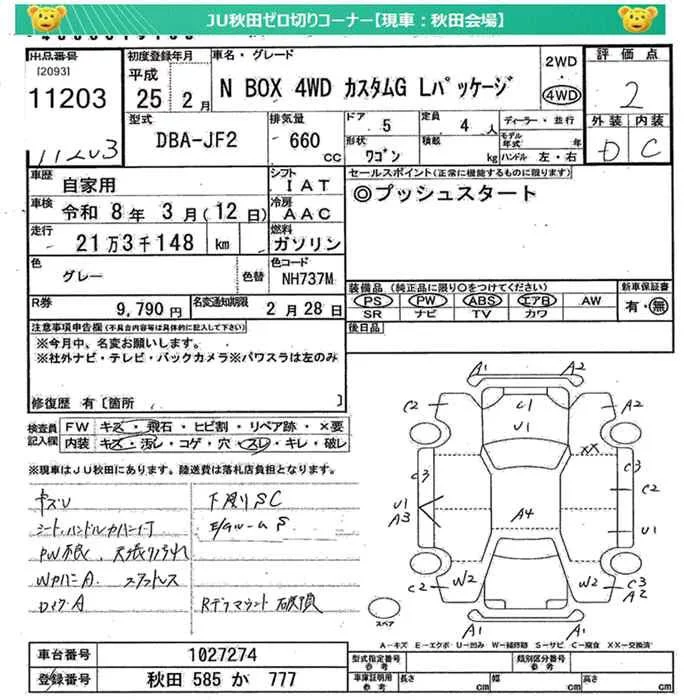 JU秋田ゼロ切りコーナー【現車：秋田会場】
出品番号
[2093]
11203
11203
初度登録年月
平成
25 2月
車名・グレード
N BOX 4WD カスタムG Lパッケージ
2WD
4WD
評価点
2
外装 内装
D C
型式
DBA-JF2
排気量
660
CC
ドア
5
定員
4人
形状
ワゴン
積載
kg
ディーラー・並行
モデル年式 年
ハンドル 左・右
車歴
自家用
シフト
IAT
車検
令和 8年 3月(12日)
冷房
AAC
走行
21万3千148 km
燃料
ガソリン
色
グレー
色替
色コード
NH737M
R券
9,790円
名変通知期限
2月28日
セールスポイント(正常に機能するものに限ります)
◎プッシュスタート
装備品 (純正品に限り○をつけてください)
PS PW ABS エアB AW
SR ナビ TV カワ
新車保証書
有・無
後日品
注意事項申告欄(不具合内容等は具体的に記入して下さい)
※今月中、名変お願いします。
※社外ナビ・テレビ・バックカメラ※パワスラは左のみ
修復歴 有〔箇所 〕
検査員記入欄
FW キズ・飛石・ヒビ割・リペア跡・×要
内装 キズ・汚レ・コゲ・穴・スレ・キレ・破レ
※現車はJU秋田にあります。陸送費は落札店負担となります。
キズU
下廻りSC
シート、ハンドルカバー付
E/gルームS
天張り汚れ
WカバーA
スタットレス
A1 A2
C2 C1 A2
U1
XX
C3 C3
C2
U1
A3
A4
U1
C2 W2 W2 C3
A2
A1
スペア
A-キズ E-エクボ U-凹み W-補修跡 S-サビ C-腐食 XX-交換済
車台番号
1027274
登録番号
秋田 585 か 777
型式指定番号
参考
類別区分番号
参考
車庫証明用
参考
長さ cm
幅 cm
高さ cm